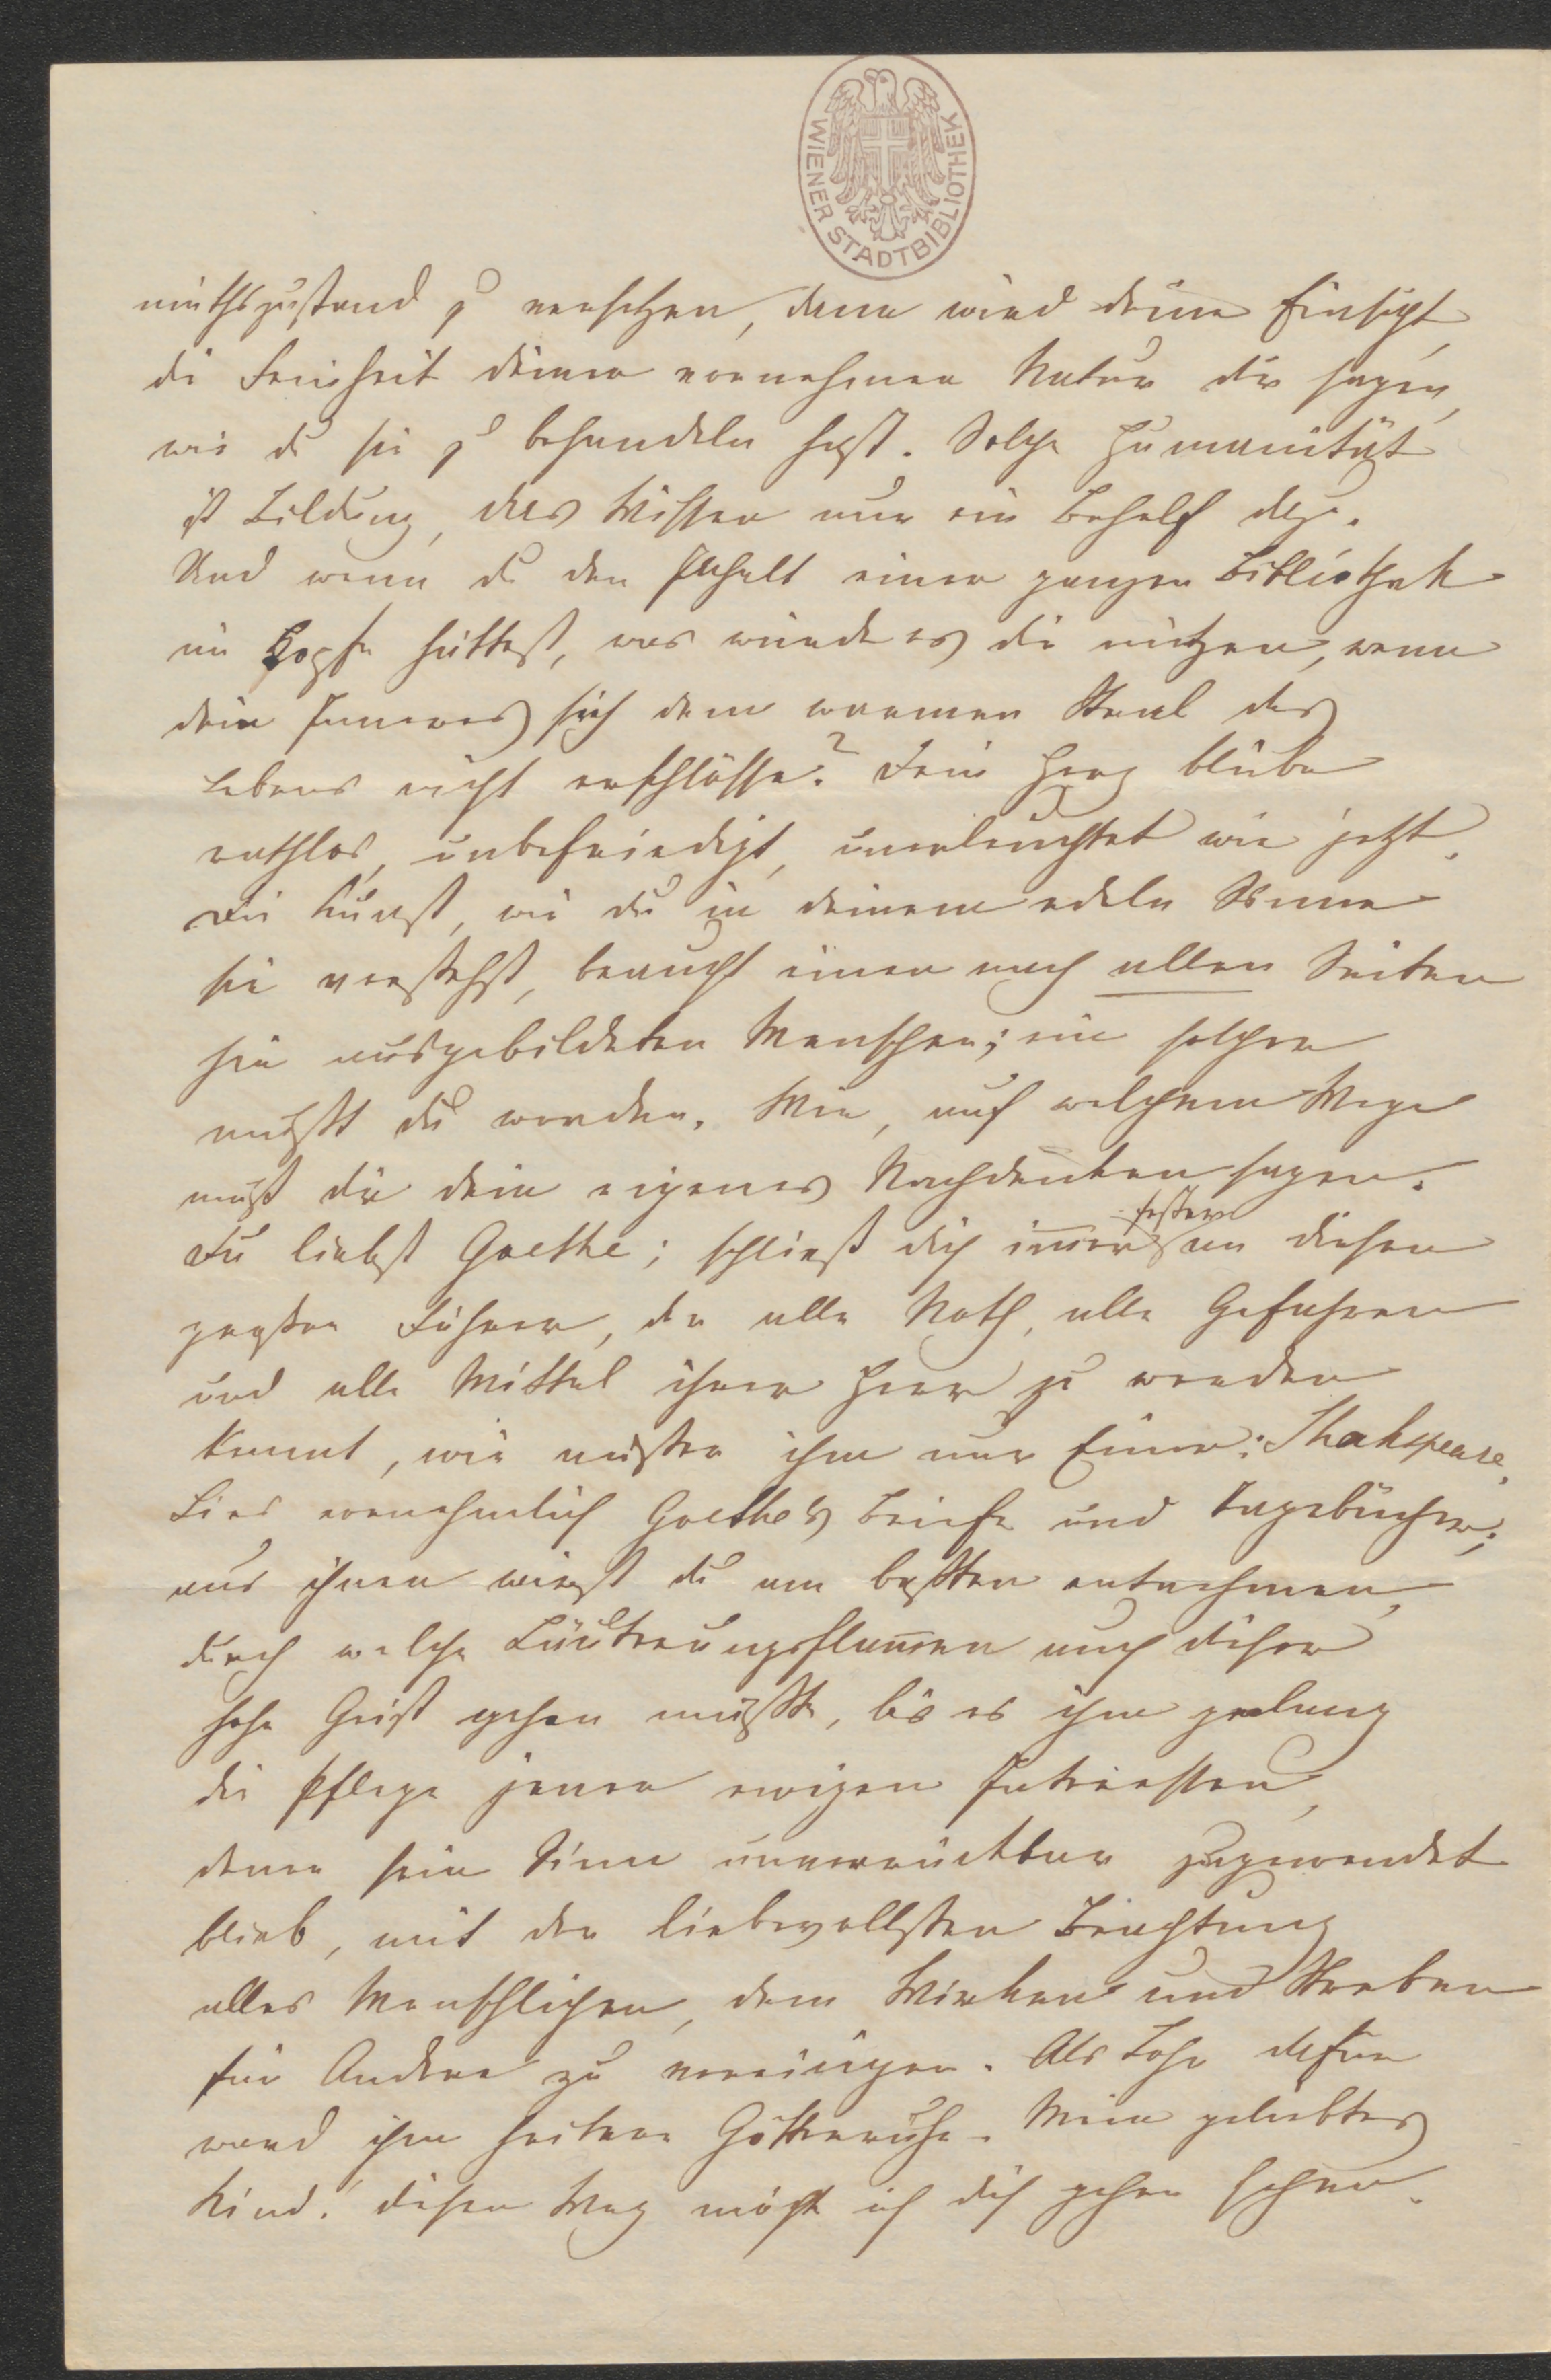 WIENER STADTBIBLIOTHEK
müthszustand z versetzen, dann wird deine Einsicht,
die Feinheit deiner vornehmen Natur dir sagen,
wie du sie z behandeln hast. Solche Humanität
ist Bildung, das Wissen nur ein Behelf dazu.
Und wenn du den Inhalt einer ganzen Bibliothek
im Kopfe hättest, was würde es dir nützen, wenn
dein Inneres sich dem warmen Stral des
Lebens nicht erschlösse? Dein Herz bliebe
rathlos, unbefriedigt, unerleuchtet wie jetzt.
Die Kunst, wie du in deinem edeln Sinne
sie verstehst, braucht einen nach allen Seiten
hin ausgebildeten Menschen; ein solcher
müßtest du werden. Wie, auf welchem Wege
muß dir dein eigenes Nachdenken sagen.
Du liebst Goethe; schließ dich immer fester an diesen
großen Führer, der alle Noth, alle Gefahren
und alle Mittel ihrer Herr zu werden
kennt, wie außer ihm nur Einer: Shakspeare.
Lies vornehmlich Goethe's Briefe und Tagebücher;
aus ihnen wirst du am besten entnehmen,
durch welche Läuterungsflammen auch dieser
hohe Geist gehen mußte, bis es ihm gelang
die Pflege jener ewigen Interessen,
denen sein Sinn unverrückbar zugewendet
blieb, mit der liebevollsten Beachtung
alles Menschlichen, dem Wirken und Streben
für Andere zu vereinigen. Als Lohn dafür
ward ihm heitere Götterruhe. Mein geliebtes
Kind! diesen Weg möcht ich dich gehen sehen.